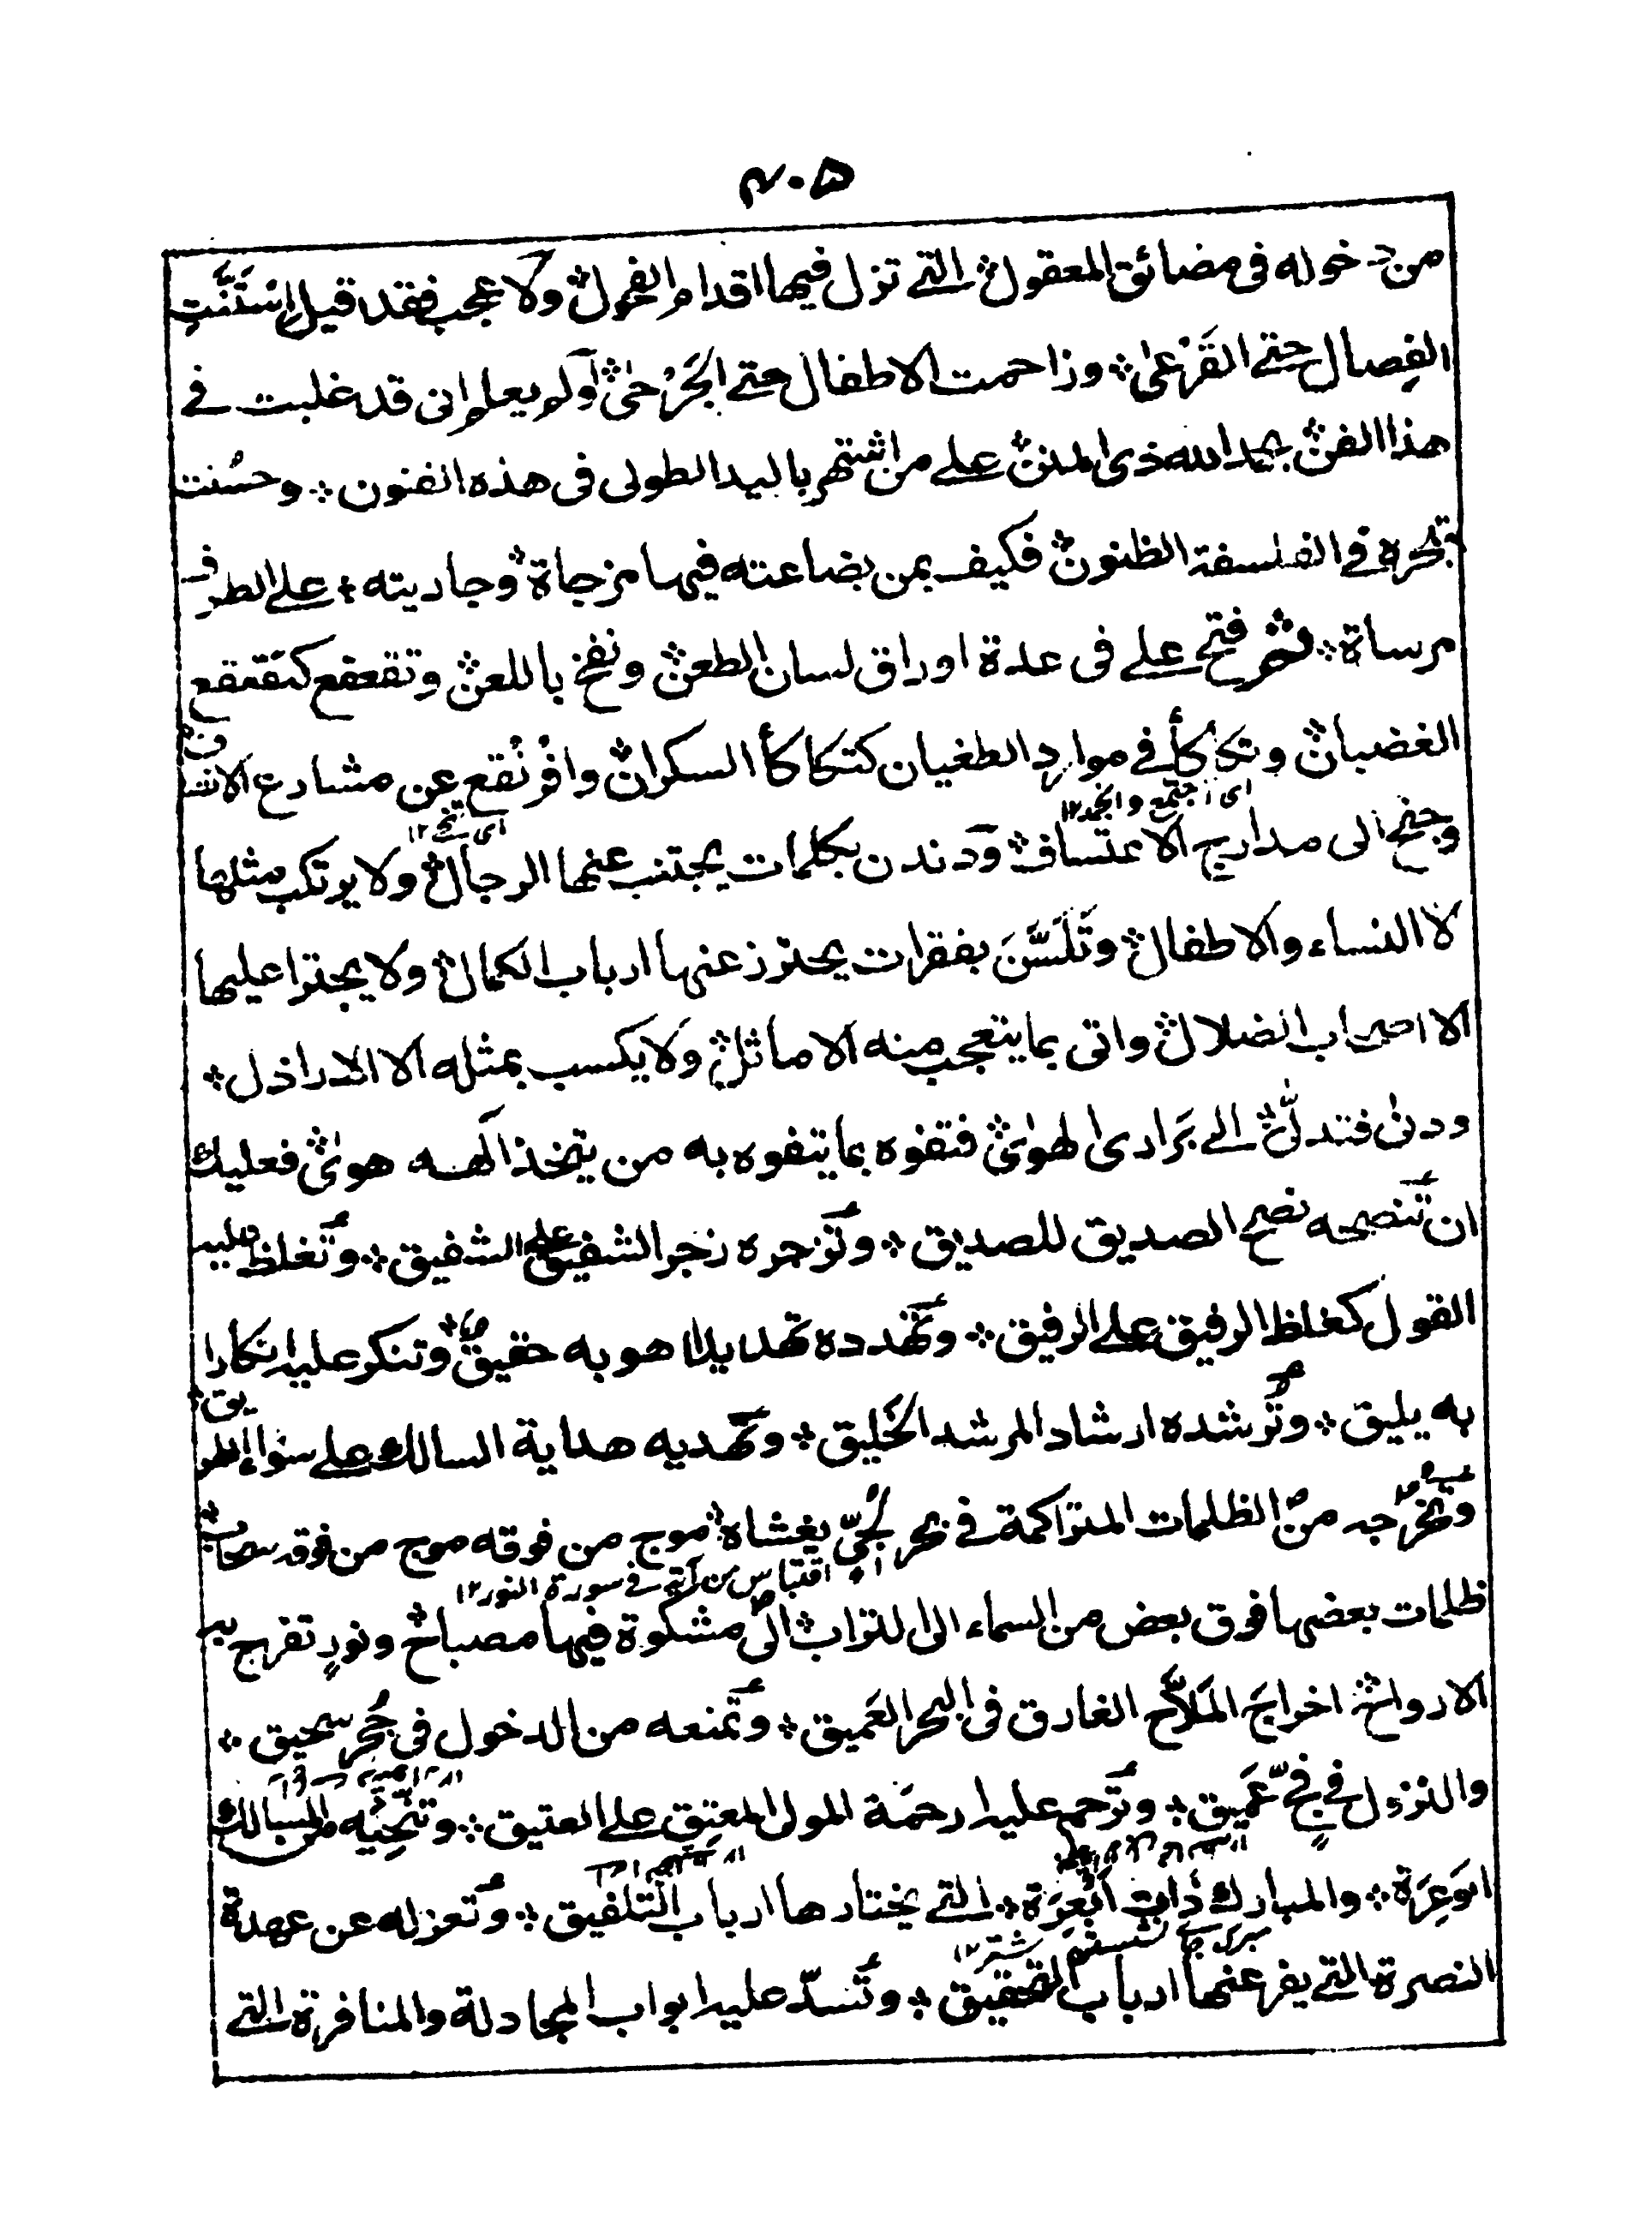 ۴۰۵
من دخوله فى مضائق المعقول؞ التے تزل فيها اقدام الفحول؞ ولا عجب فقد قيل اِسْتَنَّتِ
الفِصال حتے القَرْعىٰ؞ وزاحمت الاطفال حتے الجَرْحىٰ؞ اَوَلم يعلم انى قد غلبت فے
هذا الفن؞ بحمد الله ذى المنن؞ علے من اشتهر باليد الطولى فى هذه الفنون؞ وحسُنت
بتبحره فے الفلسفة الظنون؞ فكيف بمن بضاعته فيها مزجاة؞ وجاريته؞ علے الطرف
مرساة؞ ثم فتح علے فى عدة اوراق لسان الطعن؞ ونفخ باللعن؞ وتقعقع كتقعقع
الغضبان؞ وتكأكأ فے موارد الطغيان كتكأكأ السكران؞ وافْرنْقع عن مشارع الانصاف؞
اى اجتمع وانجمد۱۲
اى تنحے ۱۲
وجنح الى مدارج الاعتساف؞ ودندن بكلمات يجتنب عنها الرجال؞ ولا يرتكب مثلها
الا النساء والاطفال؞ وتَلَسَّنَ بفقرات يحترز عنها ارباب الكمال؞ ولا يجترا عليها
الا اصحاب الضلال؞ واتى بما يتعجب منه الاماثل؞ ولا يكسب بمثله الا الاراذل؞
ودنىٰ فتدلّىٰ؞ الے بَرَارى الهوىٰ؞ فتفوه بما يتفوه به من يتخذ الٰهه هوىٰ؞ فعليك
ان تَنصحه نصح الصديق للصديق؞ وتَزجره زجر الشفيق علے الشفيق؞ وتُغلظ عليه
القول كغلظ الرفيق علے الرفيق؞ وتُهدده تهديدا هو به حقيق؞ وتنكر عليه انكارا
به يليق؞ وتُرشده ارشاد المرشد الخَليق؞ وتَهديه هداية السالك علے سواء الطريق؞
وتُخرجه من الظلمات المتراكمة فے بحر لُجّىّ يغشاه موج من فوقه موج من فوقه سحاب؞
اقتباس من آية فے سورة النور۱۲
ظلمات بعضها فوق بعض من السماء الى التراب؞ الى مشكوة فيها مصباح؞ ونورٍ تفرح به
الارواح؞ اخراجَ المَلّاح الغارق فى البحر العَميق؞ وتَمنعه من الدخول فى جُحر سحيق؞
والنزول فے فجٍّ عَميق؞ وتَرحم عليه رحمة المولى المعتِق علے العتيق؞ وتنجّيه من المسالك
الوَعِرَة؞ والمبارك ذاتِ اَبْعِرَة؞ التے يختارها ارباب التلفيق؞ وتَعزله عن عهدة
شتر ۱۲
النصرة التے يفر عنها ارباب التحقيق؞ وتَسدّ عليه ابواب المجادلة والمنافرة التے